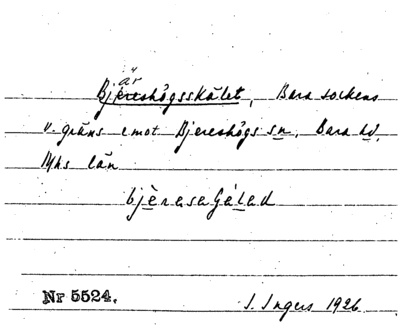 är
Bjereshögsskälet, Bara sockens
v. gräns emot Bjereshögs sn, Bara hd,
Mhs län
bjèrasaGálad
Nr 5524.
I. Ingers 1926